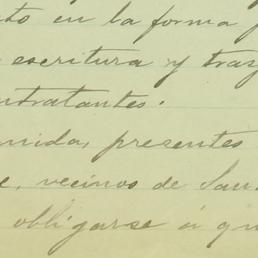 to en la forma
escritura y traz
ntratantes.
nida, presentes
e, vecinos de San
obligarse á qu